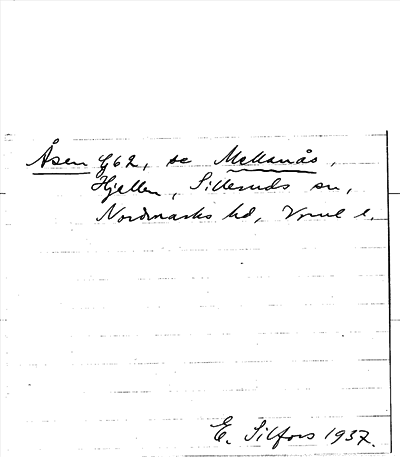 Åsen G62, se Mellanås,
Hjellen, Silleruds sn,
Nordmarks hd, Vrml l.
E. Silfors 1937.